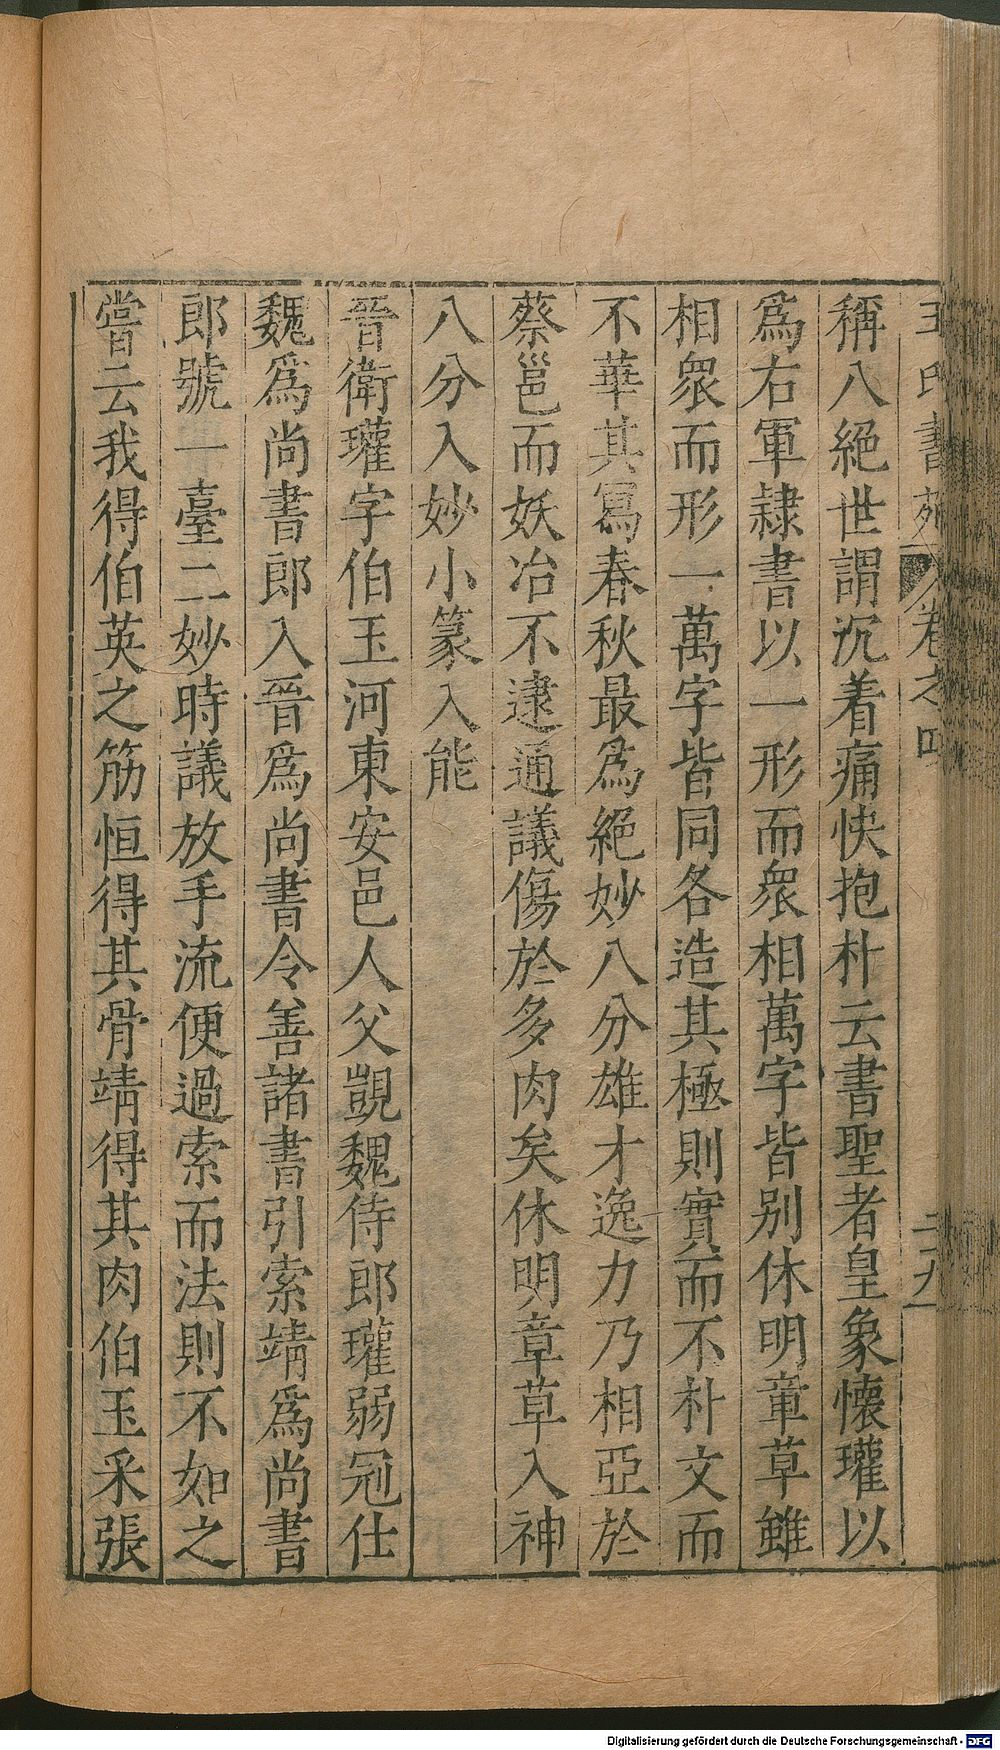 王氏書苑 卷之四 二九
稱八絕世謂沉着痛快抱朴云書聖者皇象懷瓘以
爲右軍隸書以一形而衆相萬字皆别休明章草雖
相衆而形一萬字皆同各造其極則實而不朴文而
不華其寫春秋最爲絕妙八分雄才逸力乃相亞於
蔡邕而妖冶不逮通議傷於多肉矣休明章草入神
八分入妙小篆入能
晉衛瓘字伯玉河東安邑人父覬魏侍郎瓘弱冠仕
魏爲尚書郎入晉爲尚書令善諸書引索靖爲尚書
郎號一臺二妙時議放手流便過索而法則不如之
嘗云我得伯英之筋恒得其骨靖得其肉伯玉采張
Digitalisierung gefördert durch die Deutsche Forschungsgemeinschaft - DFG